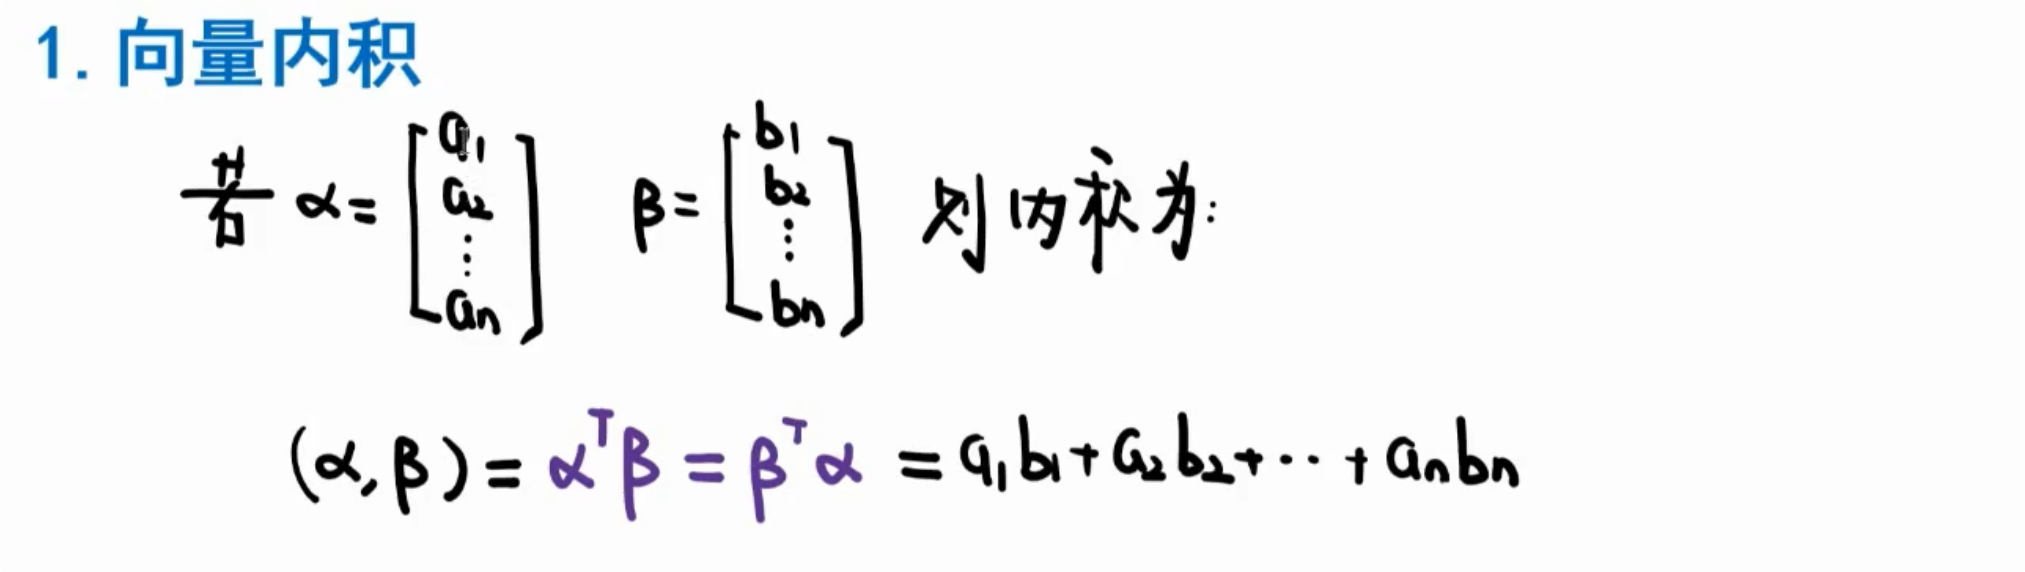 1. 向量内积
若 α = [a₁ a₂ ⋮ aₙ] β = [b₁ b₂ ⋮ bₙ] 则内积为:
(α, β) = αᵀβ = βᵀα = a₁b₁ + a₂b₂ + ⋯ + aₙbₙ